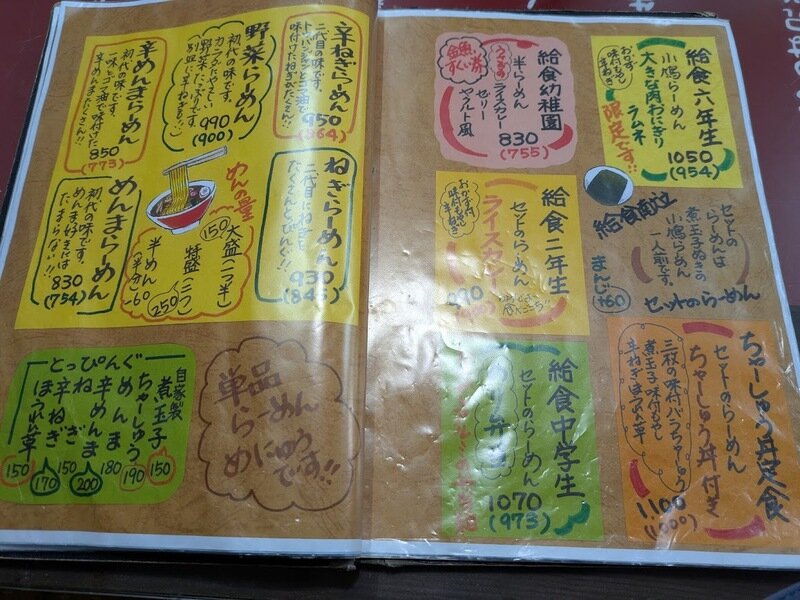 辛ねぎらーめん
二代目の味です。
トウバンジャンとゴマ油で
味付けたねぎがたくさん!!
950
(864)
野菜らーめん
初代の味です。
カラフルやさい
野菜たっぷりです。
990
(900)
辛めんまらーめん
初代の味です。
一味とゴマ油で味付けた
辛めんまたくさん!!
850
(773)
ねぎらーめん
二代目にねぎを
たくさんとぴんぐ!!
930
(845)
めんの量
大盛(一、半)
150
特盛(二つ)
250
半めん
(半分)-60
めんまらーめん
初代の味です。
めんま好きには
たまらない!!
830
(754)
とっぴんぐ
自家製
煮玉子 150
ちゃーしゅう 190
めんま 180
辛めんま 200
ねぎ 150
辛ねぎ 170
ほうれん草 150
単品
らーめん
めにゅう
です!!
給食六年生
小鳩らーめん
大きな肉おにぎり
ラムネ
1050
(954)
おかず
味付もやし
辛ねぎ
限定です!!
給食幼稚園
半らーめん
うさぎのライスカレー
ゼリー
ヤクルト風
830
(755)
金魚
すくい券
給食二年生
セットのらーめん
ライスカレー
おかず付
味付もやし
辛ねぎ
給食献立
セットの
らーめんは
煮玉子ぬきの
小鳩らーめん
一人前です。
セットのらーめん
まんじ
+60
ちゃーしゅう丼定食
セットのらーめん
ちゃーしゅう丼付き
三枚の味付バラちゃーしゅう
煮玉子味付もやし
辛ねぎほうれん草
1100
(1000)
給食中学生
セットのらーめん
弁当
1070
(973)